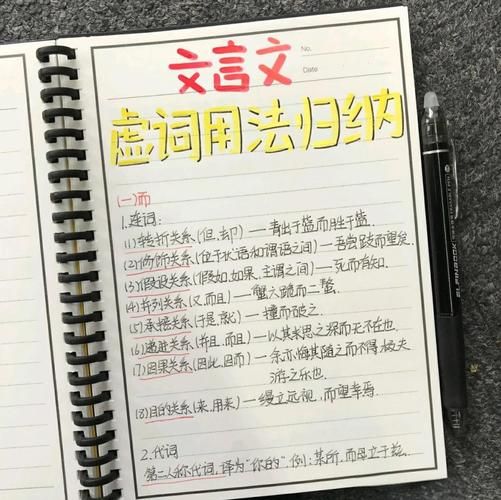 文言文
No.
Date
虚词用法归纳
(一)而
1.连词:
(1)转折关系(但,却)—青出于蓝而胜于蓝.
(2)修饰关系(位于状语和谓语之间)—吾尝跂而望矣.
(3)假设关系(假如,如果,主谓之间)—死而有知.
(4)并列关系(又,而且)—蟹六跪而二螯.
(5)承接关系(于是,就)—撞而破之.
(6)递进关系(并且,而且)—以其求思之深而无不在也.
(7)因果关系(因此,因而)—余亦悔其随之而不得极夫
游之乐也.
(8)目的关系(来,用来)—缦立远视,而望幸焉.
2.代词
第二人称代词,译为"你的".例:某所,而母立于兹.